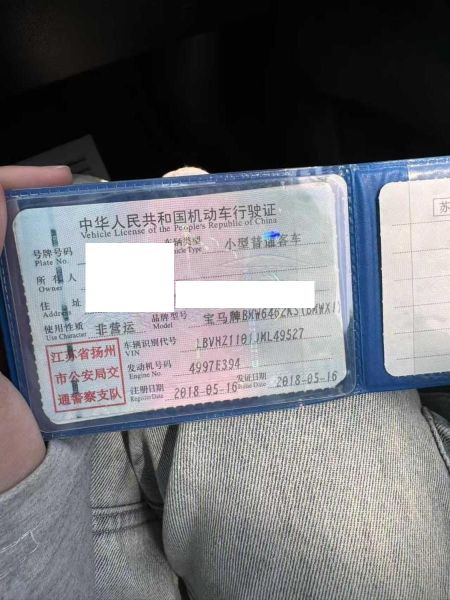 中华人民共和国机动车行驶证
Vehicle License of the People's Republic of China
号牌号码
Plate No.
车辆类型 小型普通客车
Vehicle Type
所有人
Owner
住址
Address
使用性质 非营运
Use Character
品牌型号 宝马牌BMW6462KS(BMWX1)
Model
江苏省扬州
市公安局交
通警察支队
车辆识别代号 LBVHZ1101JML49527
VIN
发动机号码 4997E394
Engine No.
注册日期 2018-05-16
Register Date
发证日期 2018-05-16
Issue Date
苏